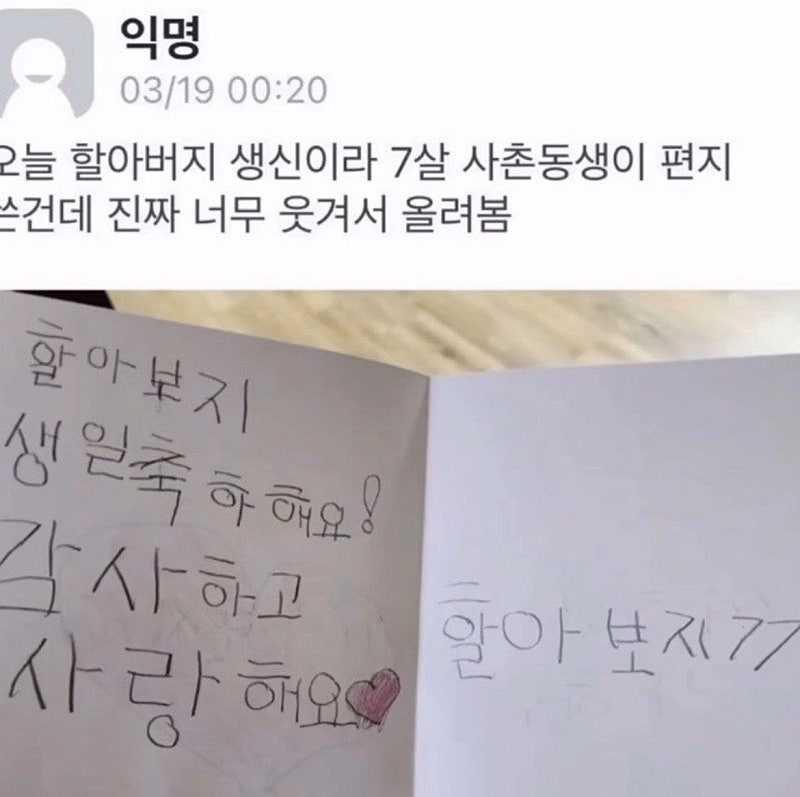 익명
03/19 00:20
오늘 할아버지 생신이라 7살 사촌동생이 편지
쓴건데 진짜 너무 웃겨서 올려봄
할아보지
생일축하해요!
감사하고
사랑해요
할아보지77